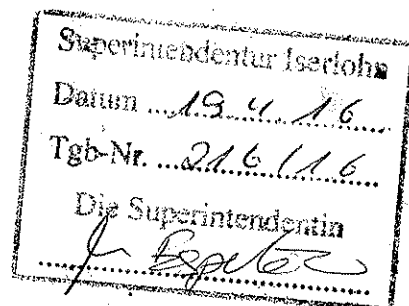 Superintendentur Iserlohn
Datum ...19.4.16
Tgb-Nr. ...216/16
Die Superintendentin